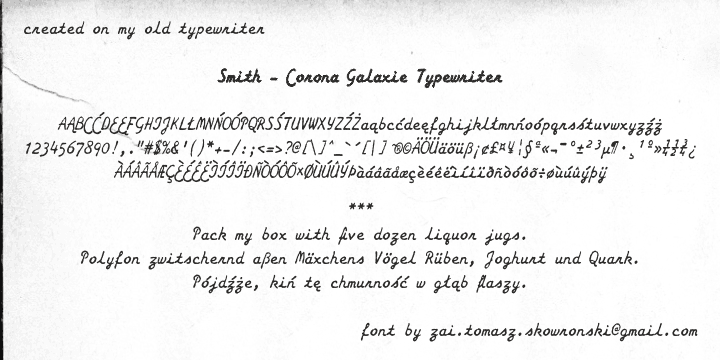 created on my old typewriter
Smith - Corona Galaxie Typewriter
AĄBCĆDEĘFGHIJKLŁMNŃOÓPQRSŚTUVWXYZŹŻaąbcćdeęfghijklłmnńoópqrsśtuvwxyzźż
1234567890!,."#$%&'()*+-/:;<=>?@[\]^_`´{|}®©ÄÖÜäöüß¡¢£¤¥¦§ª«¬¯°±²³µ¶·¸¹º»¼½¾¿
ÀÁÂÃÅÆÇÈÉÊËÌÍÎÏÐÑÒÔÕ×ØÙÚÛÝÞàáâãåæçèéêëìíîïðñòôõ÷øùúûýþÿ
***
Pack my box with five dozen liquor jugs.
Polyfon zwitschernd aßen Mäxchens Vögel Rüben, Joghurt und Quark.
Pójdźże, kiń tę chmurność w głąb flaszy.
font by zai.tomasz.skowronski@gmail.com